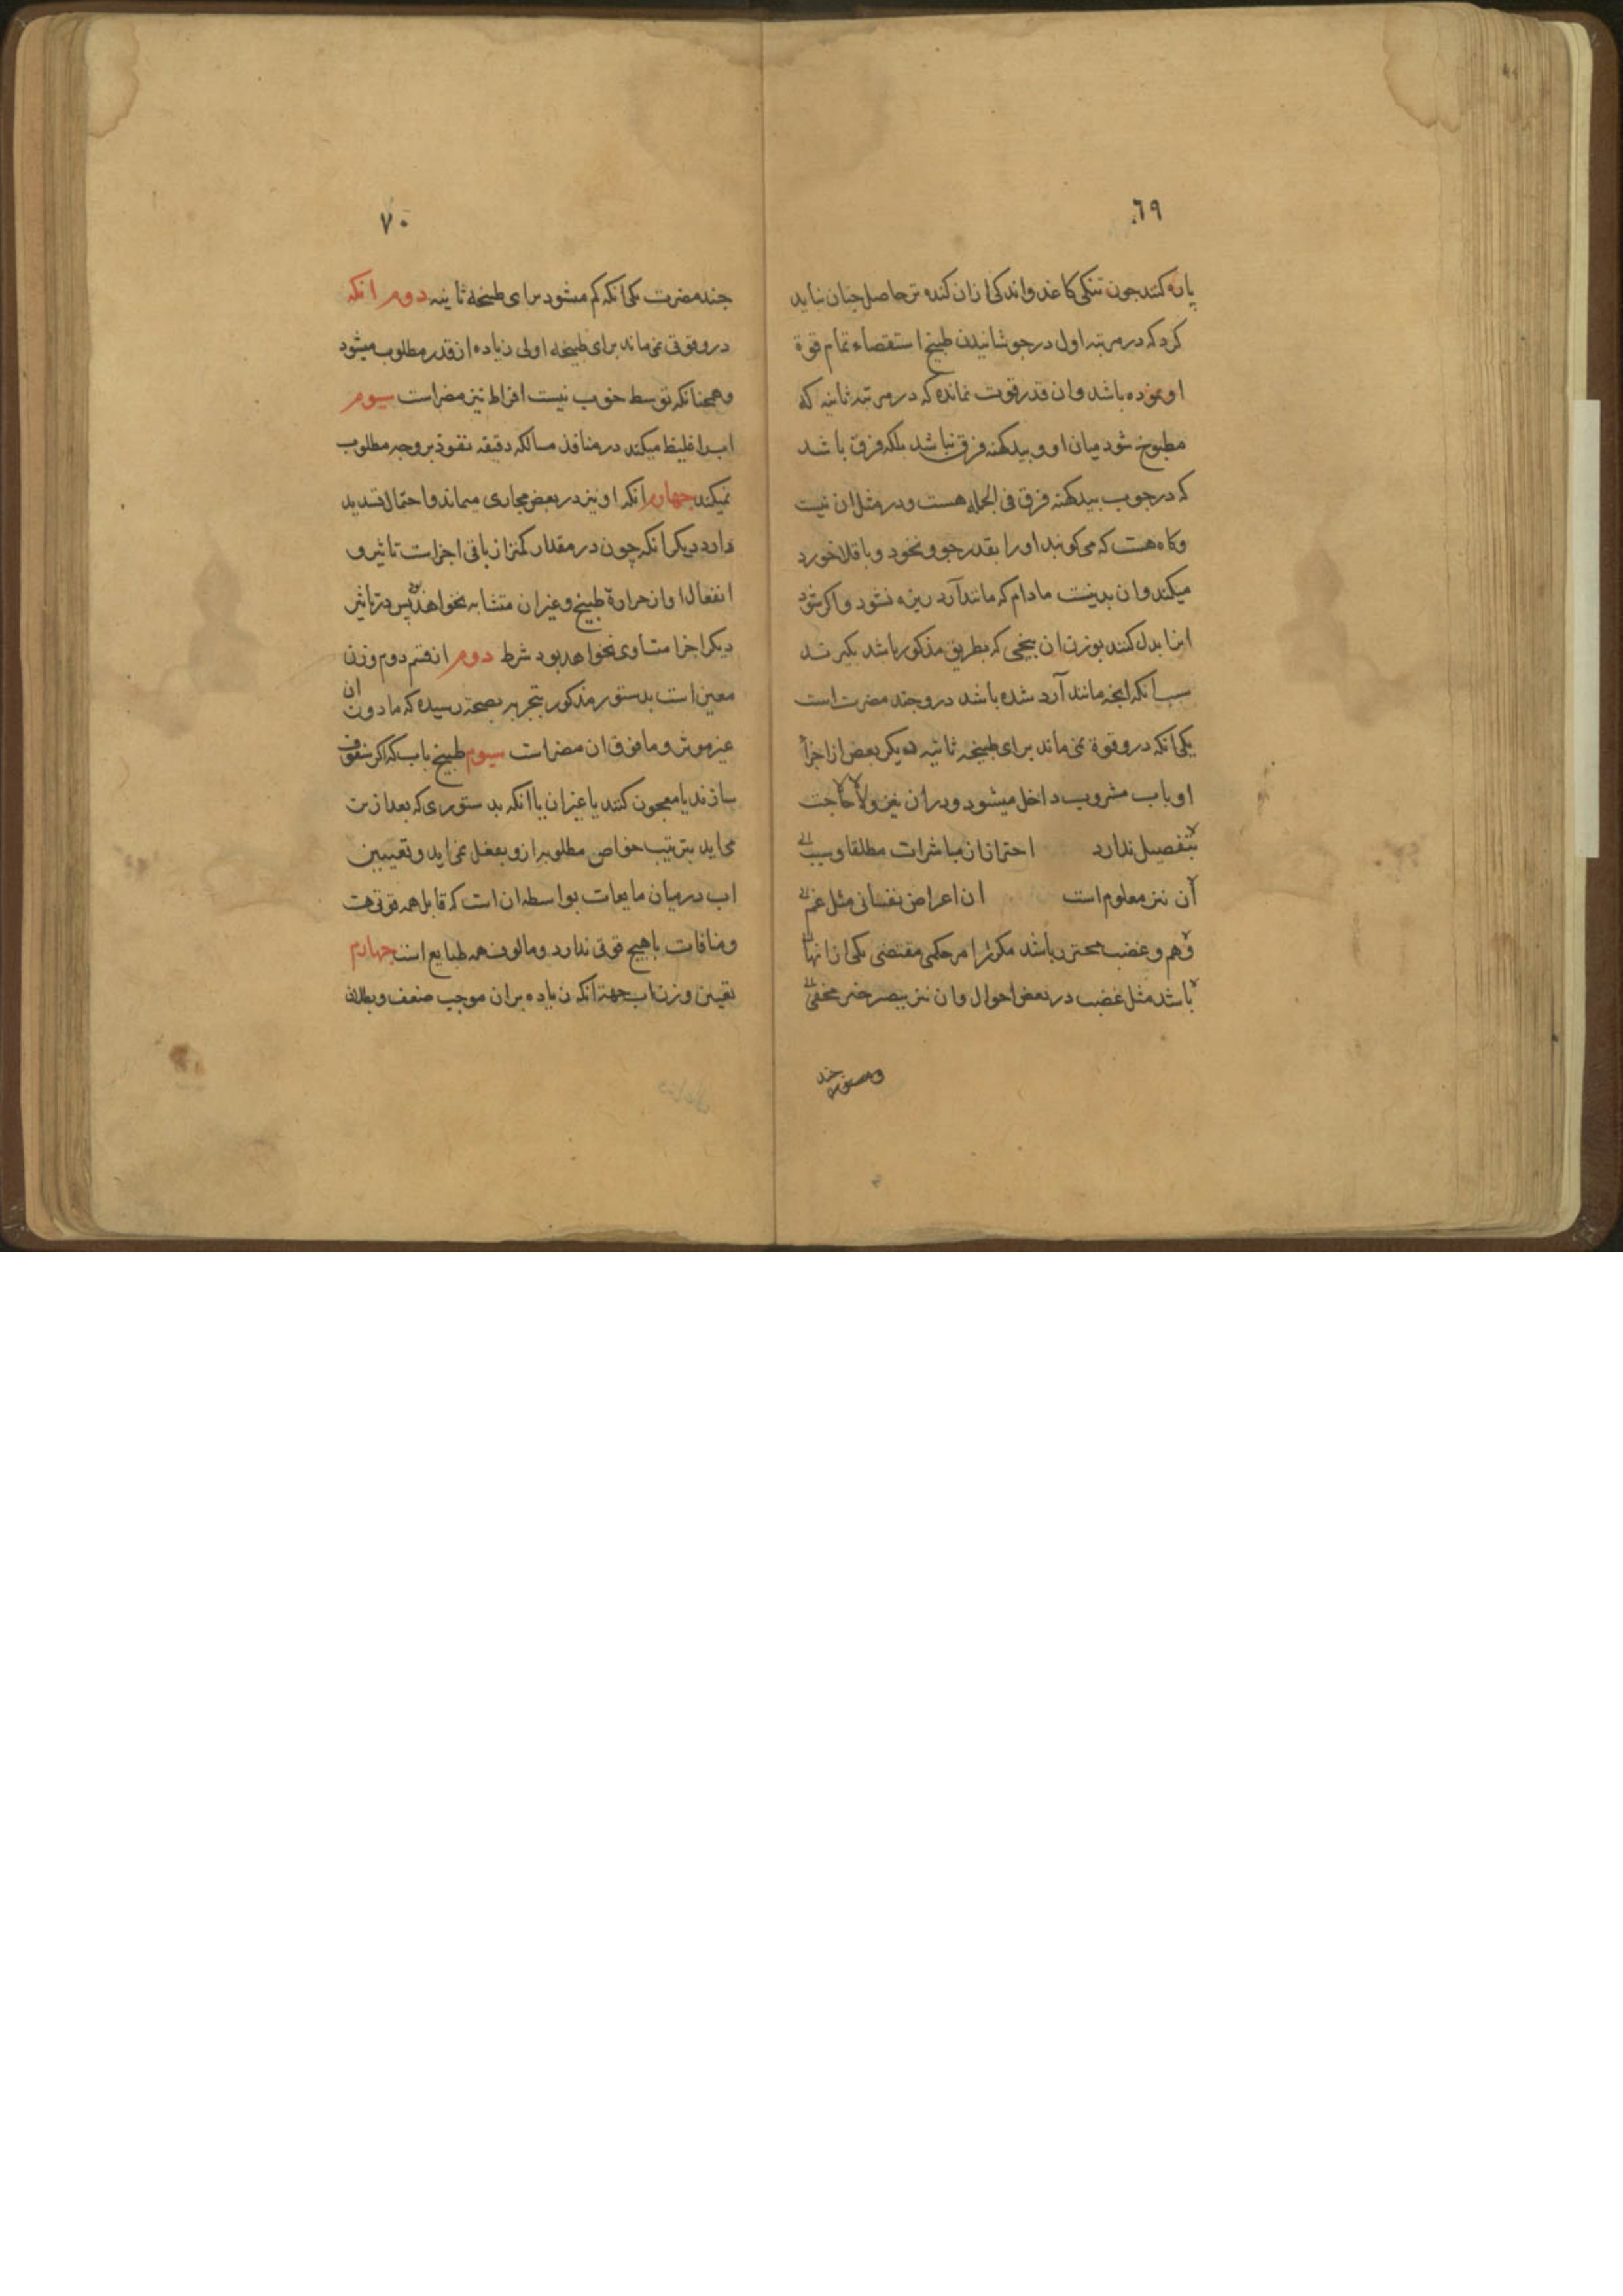 ٦٩
پاره کنند چون تنکی کاغذ و اندکی ازان کنده تر حاصل چنان نباید
کرد که در مرتبه اول در جوشانیدن طبیخ استقصاء تمام قوة
او نموده باشد و ان قدر قوت نمانده که در مرتبه ثانیه که
مطبوخ شود میان او و بید کهنه فرق نباشد بلکه فرق باشد
که در چوب بید کهنه فرق فی الجمله هست و در مثل ان نیست
و کاه هست که می کوبند او را بقدر جو و نخود و باقلا خورد
میکنند و ان بد نیست مادام که مانند آرد ریزه نشود و اکر شود
انرا بدل کنند بوزن ان بیخی که بطریق مذکور باشد بکیرند
سبب آنکه انچه مانند آرد شده باشد درو چند مضرت است
یکی انکه درو قوة نمی ماند برای طبیخه ثانیه دیکر بعض از اجزأ
او باب مشروب داخل میشود و دران نیز ولا حاجت
بتفصیل ندارد احتراز از مباشرات مطلقا و سبب
آن نیز معلوم است از اعراض نفسانی مثل غم
و هم و غضب محترز باشد مکر امر حکمی مقتضی یکی ازانها
باشد مثل غضب در بعض احوال و ان نیز
۷۰
چند مضرت یکی انکه کم میشود برای طبیخه ثانیه دوم انکه
درو قوتی نمی ماند برای طبیخه اولی زیاده از قدر مطلوب میشود
و همچنانکه توسط خوب نیست افراط نیز مضر است سیوم
اب را غلیظ میکند در منافذ مسالک دقیقه نفوذ بر وجه مطلوب
نمیکند چهارم انکه او نیز در بعض مجاری میماند و احتمال تسدید
دارد دیکر انکه چون در مقدار کمتر از باقی اجزاست تاثیر و
انفعال او از حرارة طبیخ و غیر ان متشابه نخواهد پس در تاثیر
دیکر اجزا متساوی نخواهد بود شرط دوم از قسم دوم وزن
معین است بدستور مذکور بتجربه بصحة رسیده که مادون ان
غیر موثر و مافوق ان مضر است سیوم طبیخ باب که اکر سفوف
سازند یا معجون کنند یا غیر ان یا انکه بدستوری که بعد ازین
می اید بترتیب خواص مطلوبه ازو بفعل نمی اید و تعیین
اب درمیان مایعات بواسطه ان است که قابل همه قوتی هست
و منافات با هیچ قوتی ندارد و مالوف همه طبایع است چهارم
تعیین وزن اب جهة انکه زیاده بران موجب ضعف و بطلان